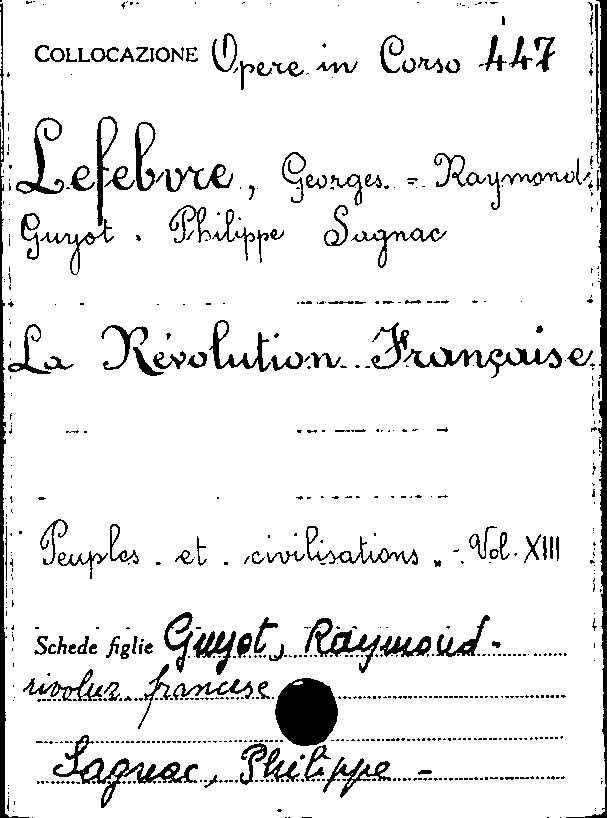 COLLOCAZIONE Opere in Corso 447
Lefebvre, Georges. = Raymond
Guyot. Philippe Sagnac
La Révolution Française
Peuples. et. civilisations„ -. Vol. XIII
Schede figlie Guyot, Raymond -
rivoluz. francese
Sagnac, Philippe -